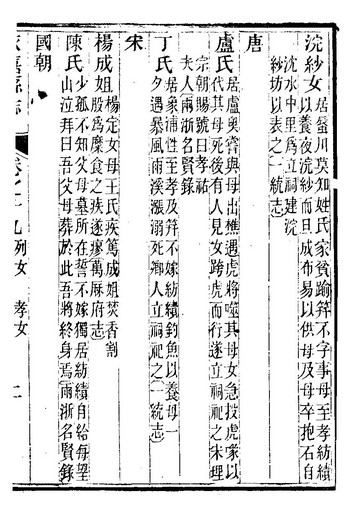 浣紗女 居罶川莫知姓氏家貧踰笄不字事母至孝紡績
以養夜浣紗而旦成布易以供母及母卒抱石自
沈水中里爲立祠建浣
紗坊以表之一統志
唐
盧氏 居盧奧嘗與母出樵遇虎將噬其母女急投虎喙以
代其母死後有人見女跨虎而行遂立祠祀之宋理
宗朝賜號曰孝祐
夫人兩浙名賢錄
丁氏 居象浦性至孝及笄不嫁紡績釣魚以養母一
夕遇暴風雨溪漲溺死鄉人立祠祀之一統志
宋
楊成姐 楊定女母王氏疾篤成姐焚香割
股爲糜食之疾遂瘳萬厯府志
陳氏 少孤不知父母墓所在誓不嫁獨居紡績自給每望
山泣拜曰吾父母葬於此吾將終身焉兩浙名賢錄
國朝
永嘉縣志
卷之十九列女 孝女 二